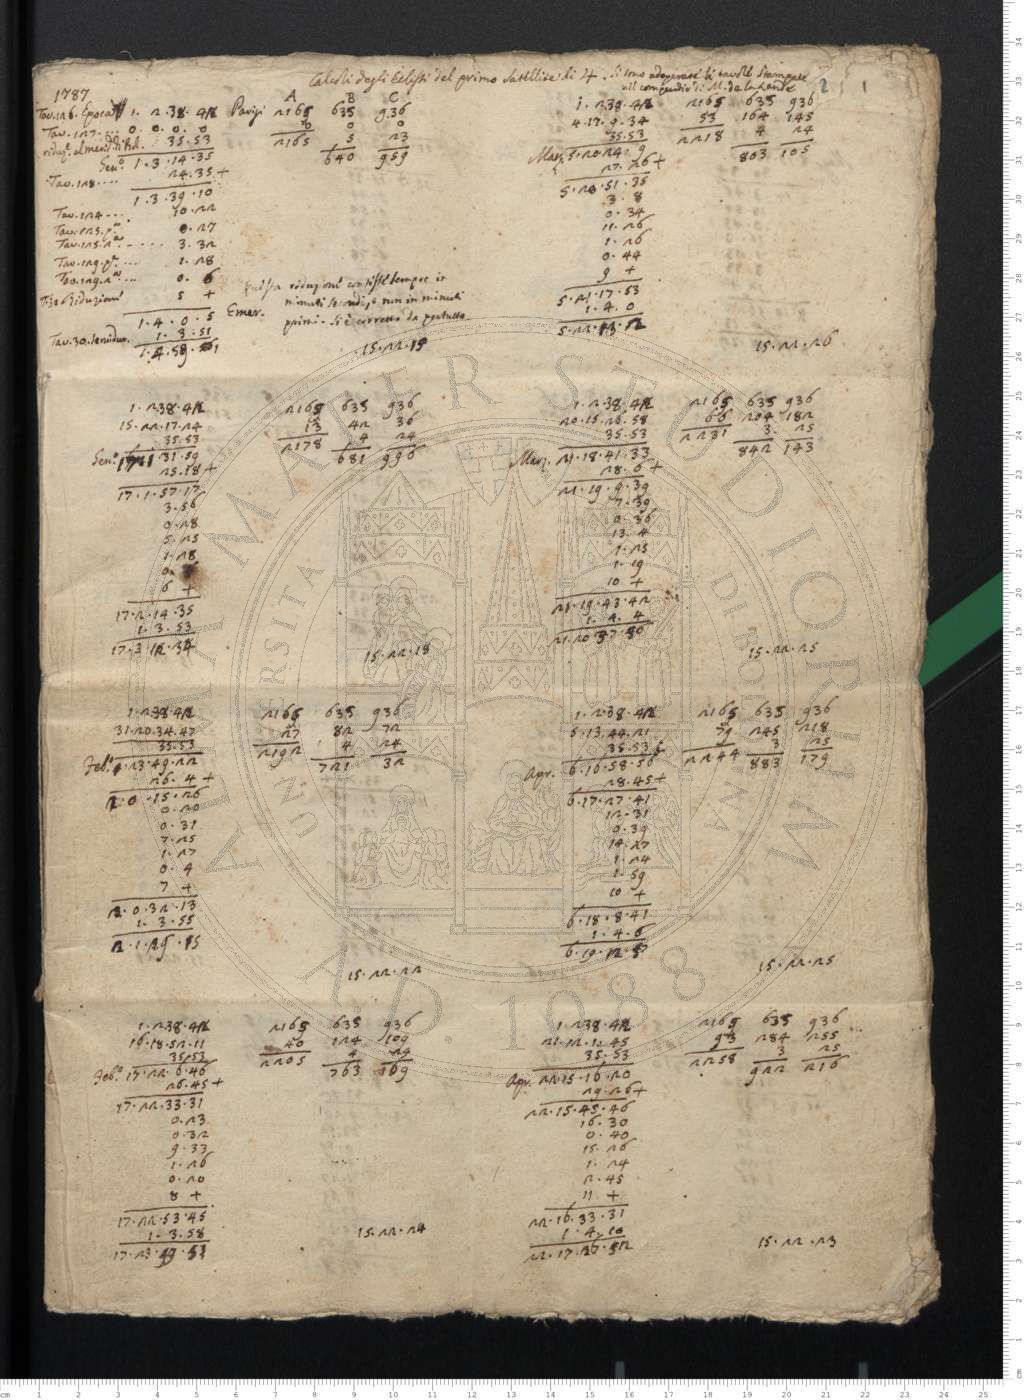 Calcoli degli Eclissi del primo Satellite di ♃. Si sono adoperate le tavole stampate
nel compendio di M. de la Lande
2 1
1787
A B C
Tav. 126. Epoca 1. 2.38.42 Parigi 2165 635 936
Tav. 127. 0. 0. 0. 0 0 0 0
35.53 2165 5 23
Gen.o 1.3.14.35 640 959
Tav. 128 .... 24.35 +
1.3.39.10
Tav. 124 ... 10.22
Tav. 125. 0.27
Tav. 125. 3.32
Tav. 129. 1.28
Tav. 129. 0. 6
5 +
1.4.0.5 Emer.
Tav. 30. 1.3.51
minuti secondi, e non in minuti
primi. Si è corretto da pertutto.
15.22.15
1. 2.38.42 2165 635 936
4.17.9.34 53 164 145
35.53 2218 4 24
Mar. 5.20.24.9 803 105
27.26 +
5.20.51.35
3. 8
0.34
11.26
1.26
0.44
9 +
5.21.17.53
1.4.0
15.22.26
1. 2.38.42 2165 635 936
15.22.17.24 13 42 36
35.53 2178 4 24
Gen.o 17.1.31.59 681 996
25.18 +
17.1.57.17
3.56
0.28
5.25
1.28
6 +
17.2.14.35
1.3.53
15.22.18
1. 2.38.42 2165 635 936
20.15.26.58 66 204 182
35.53 2231 3 25
Mar. 21.18.41.33 842 143
28.6 +
21.19.9.39
7.39
0.36
13.4
1.25
1.19
10 +
21.19.43.42
1.4.4
15.22.25
1. 2.38.42 2165 635 936
31.20.34.47 27 82 72
35.53 2192 4 24
Feb.o 1.23.49.22 721 32
26.4 +
2.0.15.26
0.20
0.31
7.25
1.27
0.4
7 +
2.0.32.13
1.3.55
15.22.22
1. 2.38.42 2165 635 936
6.13.44.21 79 245 218
35.53 2244 3 25
Apr. 6.16.58.56 883 179
28.45 +
6.17.27.41
12.31
0.39
14.27
1.24
1.59
10 +
6.18.8.41
1.4.6
15.22.25
1. 2.38.42 2165 635 936
16.18.52.11 40 124 109
35.53 2205 4 24
Feb.o 17.22.6.46 763 69
26.45 +
17.22.33.31
0.23
0.32
9.33
1.26
0.20
8 +
17.22.53.45
1.3.58
15.22.24
1. 2.38.42 2165 635 936
21.12.1.45 93 284 255
35.53 2258 3 25
Apr. 22.15.16.20 922 216
29.26 +
22.15.45.46
16.30
0.40
15.26
1.24
2.45
11 +
22.16.33.31
1.4.10
15.22.23